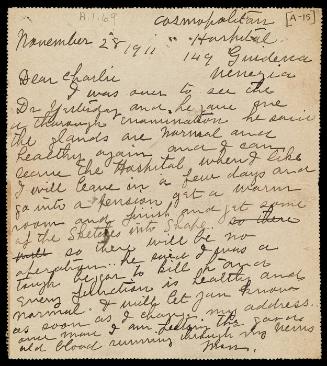 A.1.69
[A-15]
Cosmopolitan
November 28 1911 " " Hospital
149 Giudecca
Venezia
Dear Charlie
I was over to see the
Dr yesterday and he gave me
a thorough examination he said
the glands are normal and
healthy again and I can
leave the Hospital when I like
I will leave in a few days and
go into a pension get a warm
room and finish and get some
of the Sketches into Shape. so there
so there will be no
operation. He said I was a
tough beggar to kill or and
Every function is healthy and
normal. I will let you know
as soon as I change my address.
once more I am feeling the good
old blood running through my veins